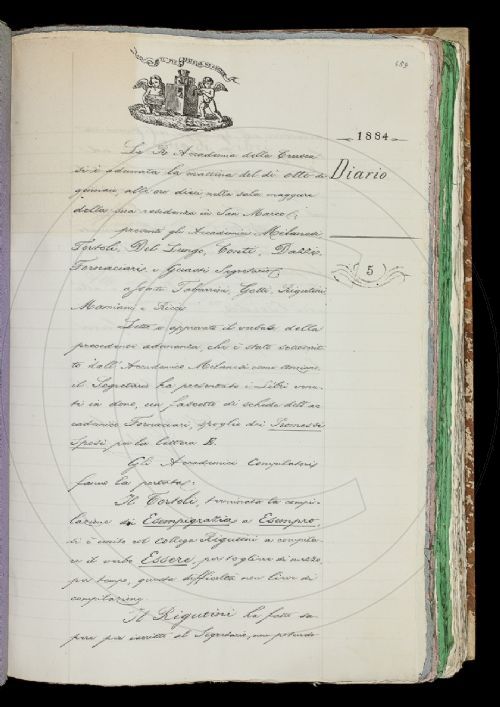 659
1884
Diario
5
La R. Accademia della Crusca
si è adunata la mattina del dì otto di
gennaio, alle ore dieci, nella sala maggiore
della sua residenza in San Marco;
presenti gli Accademici Milanesi
Tortoli, Del Lungo, Conti, Dazzi,
Fornaciari e Guasti Segretario;
assenti Tabarrini, Gotti, Rigutini
Mamiani e Ricci.
Letto e approvato il verbale della
precedente adunanza, che è stato sottoscrit-
to dall'Accademico Milanesi come anziano,
il Segretario ha presentato i Libri venu-
ti in dono, e un fascetto di schede dell'ac-
cademico Fornaciari, spoglio dei Promessi
Sposi, per la lettera E.
Gli Accademici Compilatori
fanno la portata.
Il Tortoli, terminata la compi-
lazione di Esempigrazia e Esempro
si è unito col collega Rigutini a compila-
re il verbo Essere, per togliere di mezzo,
per tempo, questa difficoltà non lieve di
compilazione.
Il Rigutini ha fatto sa-
pere per iscritto al Segretario, non potendo